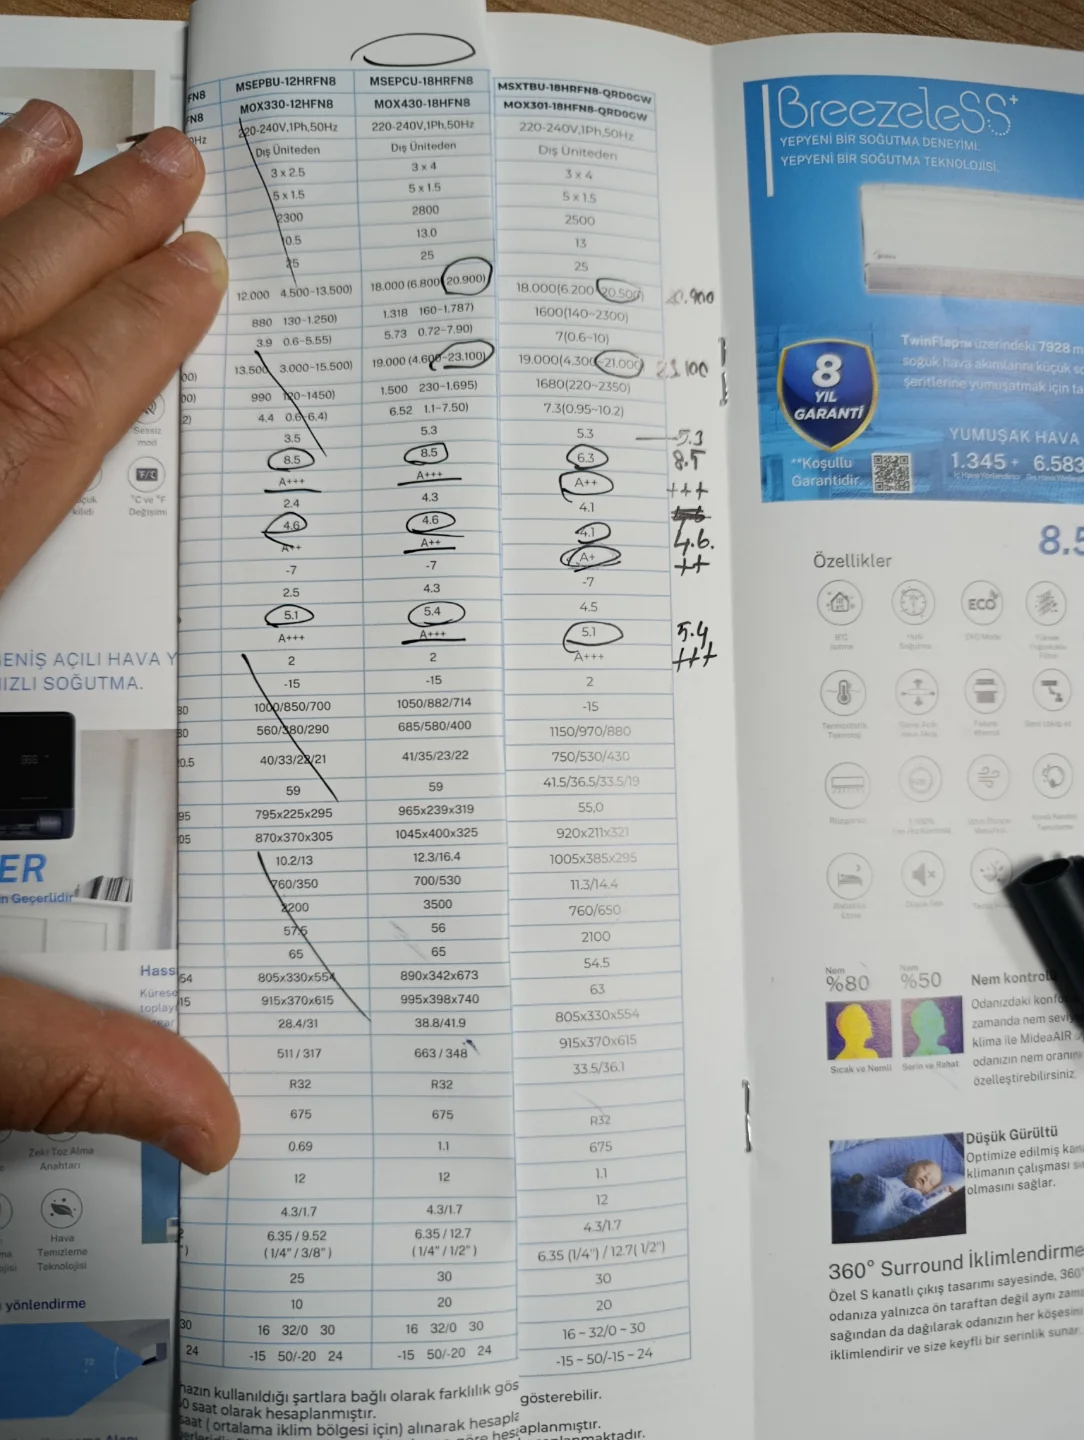 FN8 MSEPBU-12HRFN8 MSEPCU-18HRFN8 MSXTBU-18HRFN8-QRD0GW
FN8 MOX330-12HFN8 MOX430-18HFN8 MOX301-18HFN8-QRD0GW
0Hz 220-240V,1Ph,50Hz 220-240V,1Ph,50Hz 220-240V,1Ph,50Hz
Dış Üniteden Dış Üniteden Dış Üniteden
3 x 2.5 3 x 4 3 x 4
5 x 1.5 5 x 1.5 5 x 1.5
2300 2800 2500
10.5 13.0 13
25 25 25
12.000 4.500~13.500) 18.000 (6.800 20.900) 18.000(6.200 20.500) 20.900
880 130~1.250) 1.318 160~1.787) 1600(140~2300)
3.9 0.6~5.55) 5.73 0.72~7.90) 7(0.6~10)
00) 13.500 3.000~15.500) 19.000 (4.600~23.100) 19.000(4.300~21.000) 23.100
00) 990 120~1450) 1.500 230~1.695) 1680(220~2350)
2) 4.4 0.6~6.4) 6.52 1.1~7.50) 7.3(0.95~10.2)
3.5 5.3 5.3 5.3
8.5 8.5 6.3 8.5
A+++ A+++ A++ +++
2.4 4.3 4.1
4.6 4.6 4.1 4.6.
A++ A++ A+ ++
-7 -7 -7
2.5 4.3 4.5
5.1 5.4 5.1 5.4
A+++ A+++ A+++ +++
2 2 2
-15 -15 -15
80 1000/850/700 1050/882/714 1150/970/880
80 560/380/290 685/580/400 750/530/430
20.5 40/33/22/21 41/35/23/22 41.5/36.5/33.5/19
59 59 55,0
95 795x225x295 965x239x319 920x211x321
05 870x370x305 1045x400x325 1005x385x295
10.2/13 12.3/16.4 11.3/14.4
760/350 700/530 760/650
2200 3500 2100
57.5 56 54.5
65 65 63
54 805x330x554 890x342x673 805x330x554
15 915x370x615 995x398x740 915x370x615
28.4/31 38.8/41.9 33.5/36.1
511 / 317 663 / 348
R32 R32 R32
675 675 675
0.69 1.1 1.1
12 12 12
4.3/1.7 4.3/1.7 4.3/1.7
6.35 / 9.52 6.35 / 12.7 6.35 (1/4") / 12.7( 1/2")
") (1/4" / 3/8") (1/4" / 1/2")
25 30 30
10 20 20
30 16 32/0 30 16 32/0 30 16 ~ 32/0 ~ 30
24 -15 50/-20 24 -15 50/-20 24 -15 ~ 50/-15 ~ 24
nazın kullanıldığı şartlara bağlı olarak farklılık gös gösterebilir.
0 saat olarak hesaplanmıştır.
saat ( ortalama iklim bölgesi için) alınarak hesapla aplanmıştır.
Sessiz
mod
çuk
kilidi
°C ve °F
Değişimi
GENİŞ AÇILI HAVA Y
HIZLI SOĞUTMA.
ER
n Geçerlidir
Hass
Kürese
toplayı
Zeki Toz Alma
Anahtarı
Hava
Temizleme
Teknolojisi
yönlendirme
BreezeleSS+
YEPYENİ BİR SOĞUTMA DENEYİMİ.
YEPYENİ BİR SOĞUTMA TEKNOLOJİSİ.
TwinFlap™ üzerindeki 7928 m
soğuk hava akımlarını küçük
şeritlerine yumuşatmak için ta
8
YIL
GARANTİ
**Koşullu
Garantidir.
YUMUŞAK HAVA
1.345+ 6.583
8.5
Özellikler
ECO
Nem
%80
Nem
%50
Sıcak ve Nemli
Serin ve Rahat
Nem kontrol
Odanızdaki konfo
zamanda nem seviy
klima ile MideaAIR
odanızın nem oranını
özelleştirebilirsiniz.
Düşük Gürültü
Optimize edilmiş kan
klimanın çalışması
olmasını sağlar.
360° Surround İklimlendirme
Özel S kanatlı çıkış tasarımı sayesinde, 360°
odanıza yalnızca ön taraftan değil aynı zama
sağından da dağılarak odanın her köşesini
iklimlendirir ve size keyfli bir serinlik sunar.